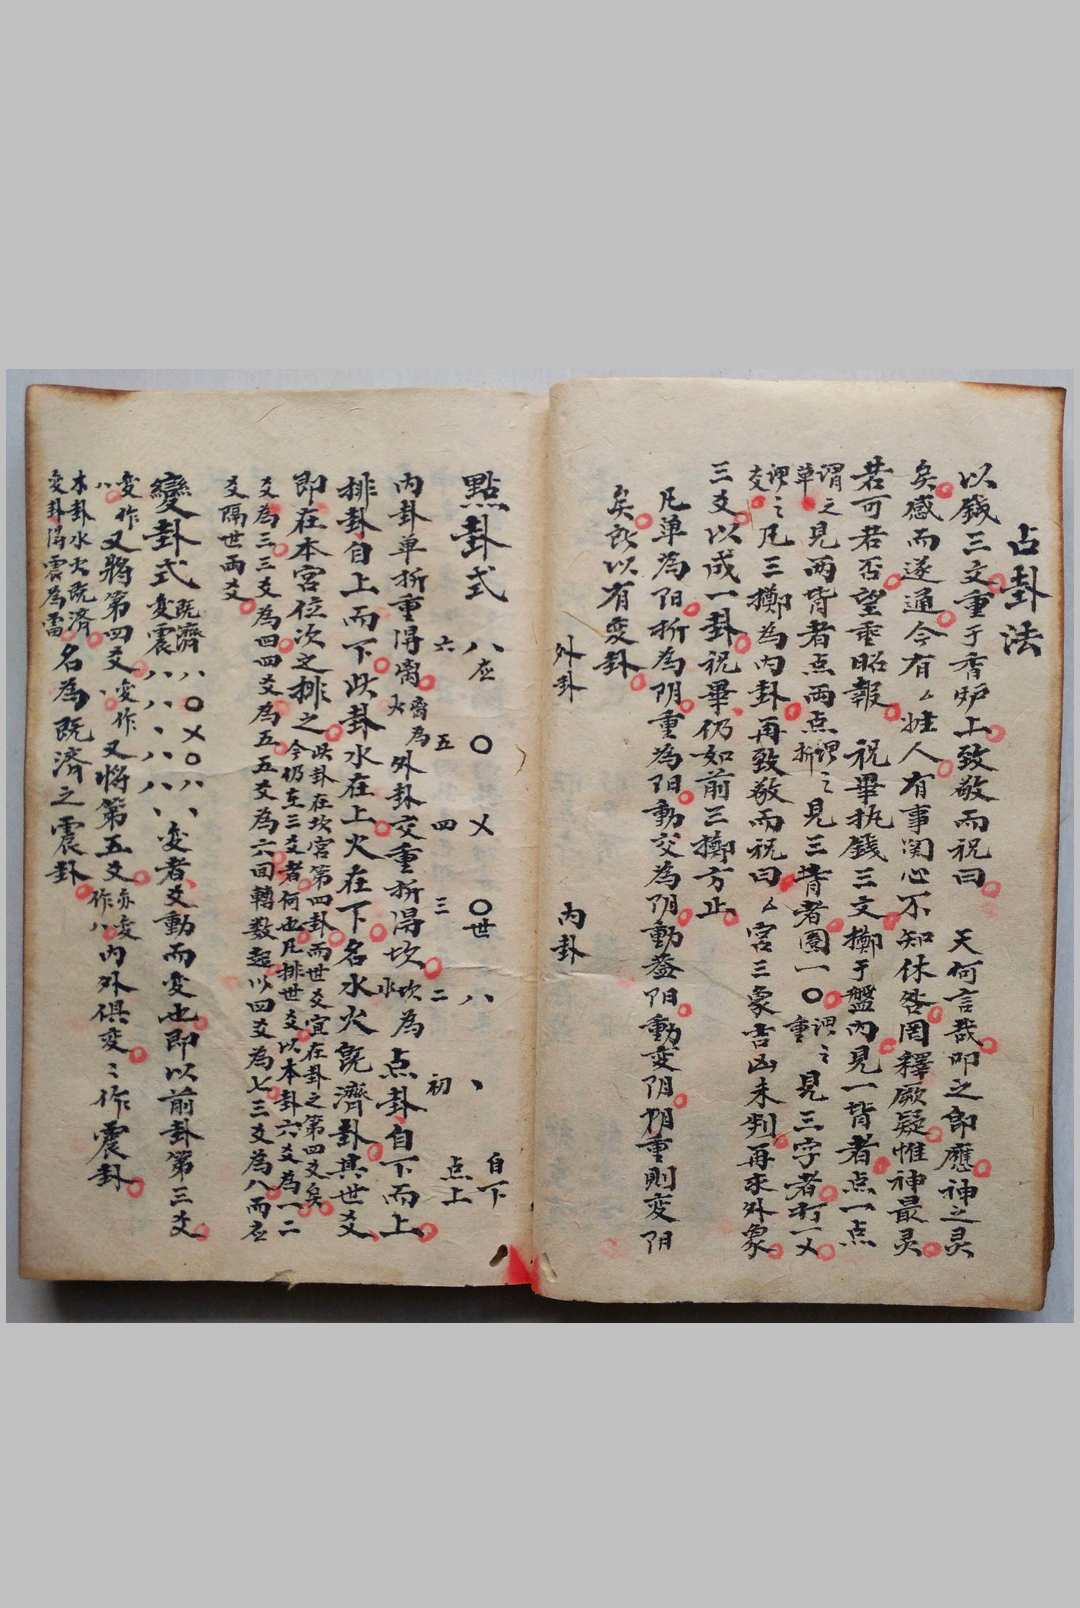 占卦法
以錢三文重于香炉上致敬而祝曰 天何言哉叩之即應神之灵
矣感而遂通今有厶姓人有事関心不知休咎罔釋厥疑惟神最灵
若可若否望垂昭報 祝畢执錢三文擲于盤内見一背者点一点
謂之單見两背者点两点謂之折見三背者圈一〇謂之重見三字者打一乂
謂之交凡三擲為内卦再致敬而祝曰厶宮三象吉凶未判再求外象
三爻以成一卦祝畢仍如前三擲方止
凡单為阳折為阴重為阳動交為阴動蓋阳動变阴阴重則变阴
矣所以有变卦
外卦 内卦
點卦式 八应 〇 乂 〇世 八 、 自下点上
六 五 四 三 二 初
内卦单折重得离离為火外卦交重折得坎坎為水点卦自下而上
排卦自上而下此卦水在上火在下名水火既濟卦其世爻
即在本宮位次之排之此卦在坎宮第四卦而世爻宜在卦之第四爻矣今仍在三爻者何也凡排世爻以本卦六爻為一二
爻為三三爻為四四爻為五五爻為六回轉数起以四爻為七三爻為八而应
爻隔世两爻
變卦式 既濟 八〇乂〇八、 变震 八八、八八、 变者爻動而变也即以前卦第三爻
变作八又將第四爻变作、又将第五爻亦变作八内外俱变〻作震卦
本卦水火既濟变卦得震為雷名為既濟之震卦